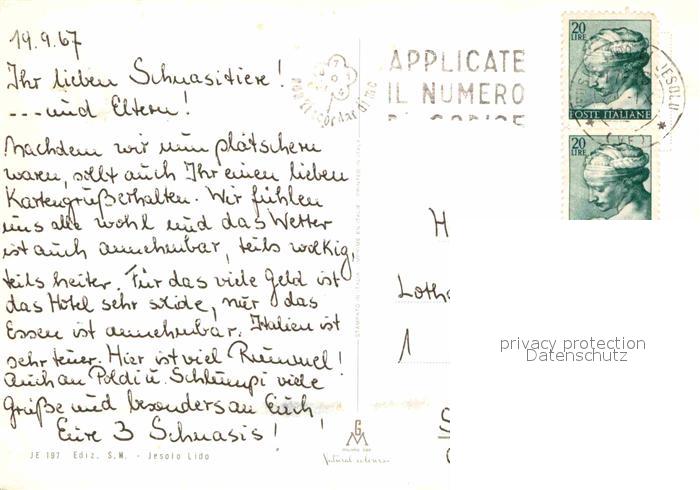 19.9.67
Ihr lieben Schnasitiere!
--- und Eltern!
Nachdem wir nun plätschern
waren, sollt auch Ihr einen lieben
Kartengruß erhalten. Wir fühlen
uns alle wohl und das Wetter
ist auch annehmbar, teils wolkig,
teils heiter. Für das viele Geld ist
das Hotel sehr solide, nur das
Essen ist annehmbar. Italien ist
sehr teuer. Hier ist viel Rummel!
Auch an Poldi u. Schlumpi viele
Grüße und besonders an Euch!
Eure 3 Schnasis!
JE 197 Ediz. S.M. - Jesolo Lido
APPLICATE
IL NUMERO
DI CODICE
non ti scordar di me
20
LIRE
POSTE ITALIANE
20
LIRE
JESOLO
H
Loth
1
S
privacy protection
Datenschutz
GM
natural colour